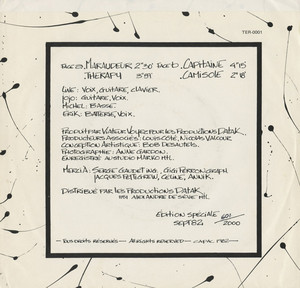 TER-0001
FACE A, MARAUDEUR 2'36" FACE B, CAPITAINE 4'15
THERAPY 3'51 CAMISOLE 2'18
VOIX, GUITARE, CLAVIER.
JOJO: GUITARE, VOIX.
MICHEL: BASSE.
ERIK: BATTERIE, VOIX.
PRODUIT PAR VOYEUR POUR LES PRODUCTIONS DATAK.
PRODUCTEURS ASSOCIÉS: LOUIS CÔTÉ, NICOLAS VALCOUR
CONCEPTION ARTISTIQUE: BOB DESAUTELS.
PHOTOGRAPHIE: ANNE GARDON.
ENREGISTRÉ AU STUDIO MARKO MTL.
MERCI À: SERGE GAUDET INC, GIGI
JACQUES CELINE, ANNIK.
DISTRIBUÉ PAR LES PRODUCTIONS DATAK.
ALEXANDRE DE SÈVE MTL
ÉDITION SPÉCIALE
SEPT 82 2000
TOUS DROITS RÉSERVÉS — ALL RIGHTS RESERVED — CAPAC